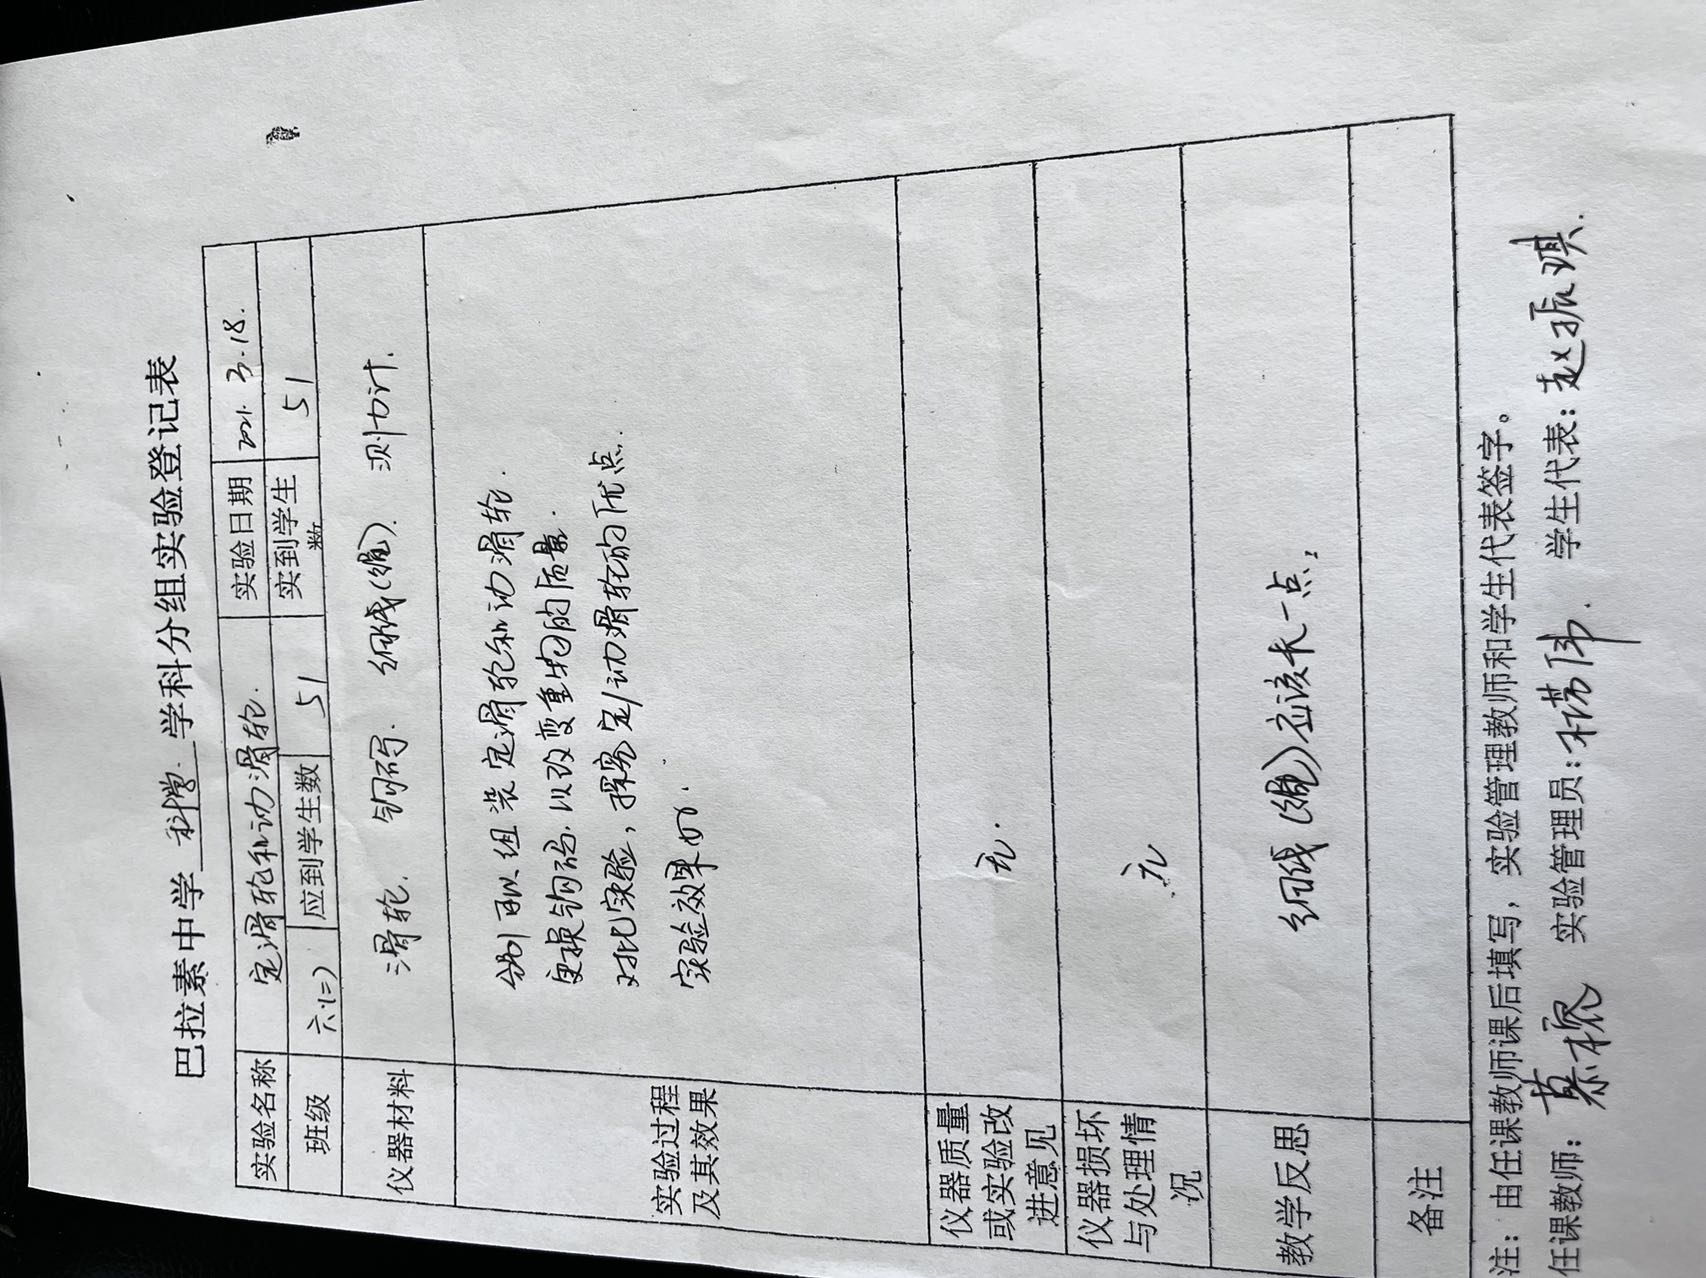 巴拉素中学 科学 学科分组实验登记表
实验名称 定滑轮和动滑轮. 实验日期 2021. 3.18.
班级 六.(二) 应到学生数 51 实到学生数 51
仪器材料 滑轮. 钩码. 细线(绳). 测力计.
实验过程及其效果
分别可以组装定滑轮和动滑轮.
更换钩码.以改变重物的质量.
对比实验,探究定/动滑轮的优点.
实验效果好.
仪器质量或实验改进意见 无.
仪器损坏与处理情况 无
教学反思 细线(绳)应该长一点.
备注
注：由任课教师课后填写，实验管理教师和学生代表签字。
任课教师： 实验管理员： 学生代表：赵振琪.